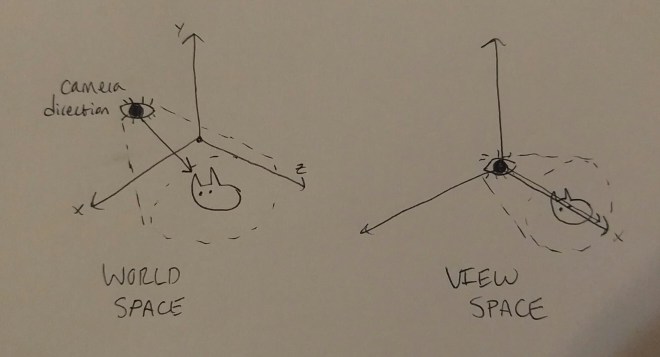 Y
camera
direction
Z
X
X
WORLD
SPACE
VIEW
SPACE